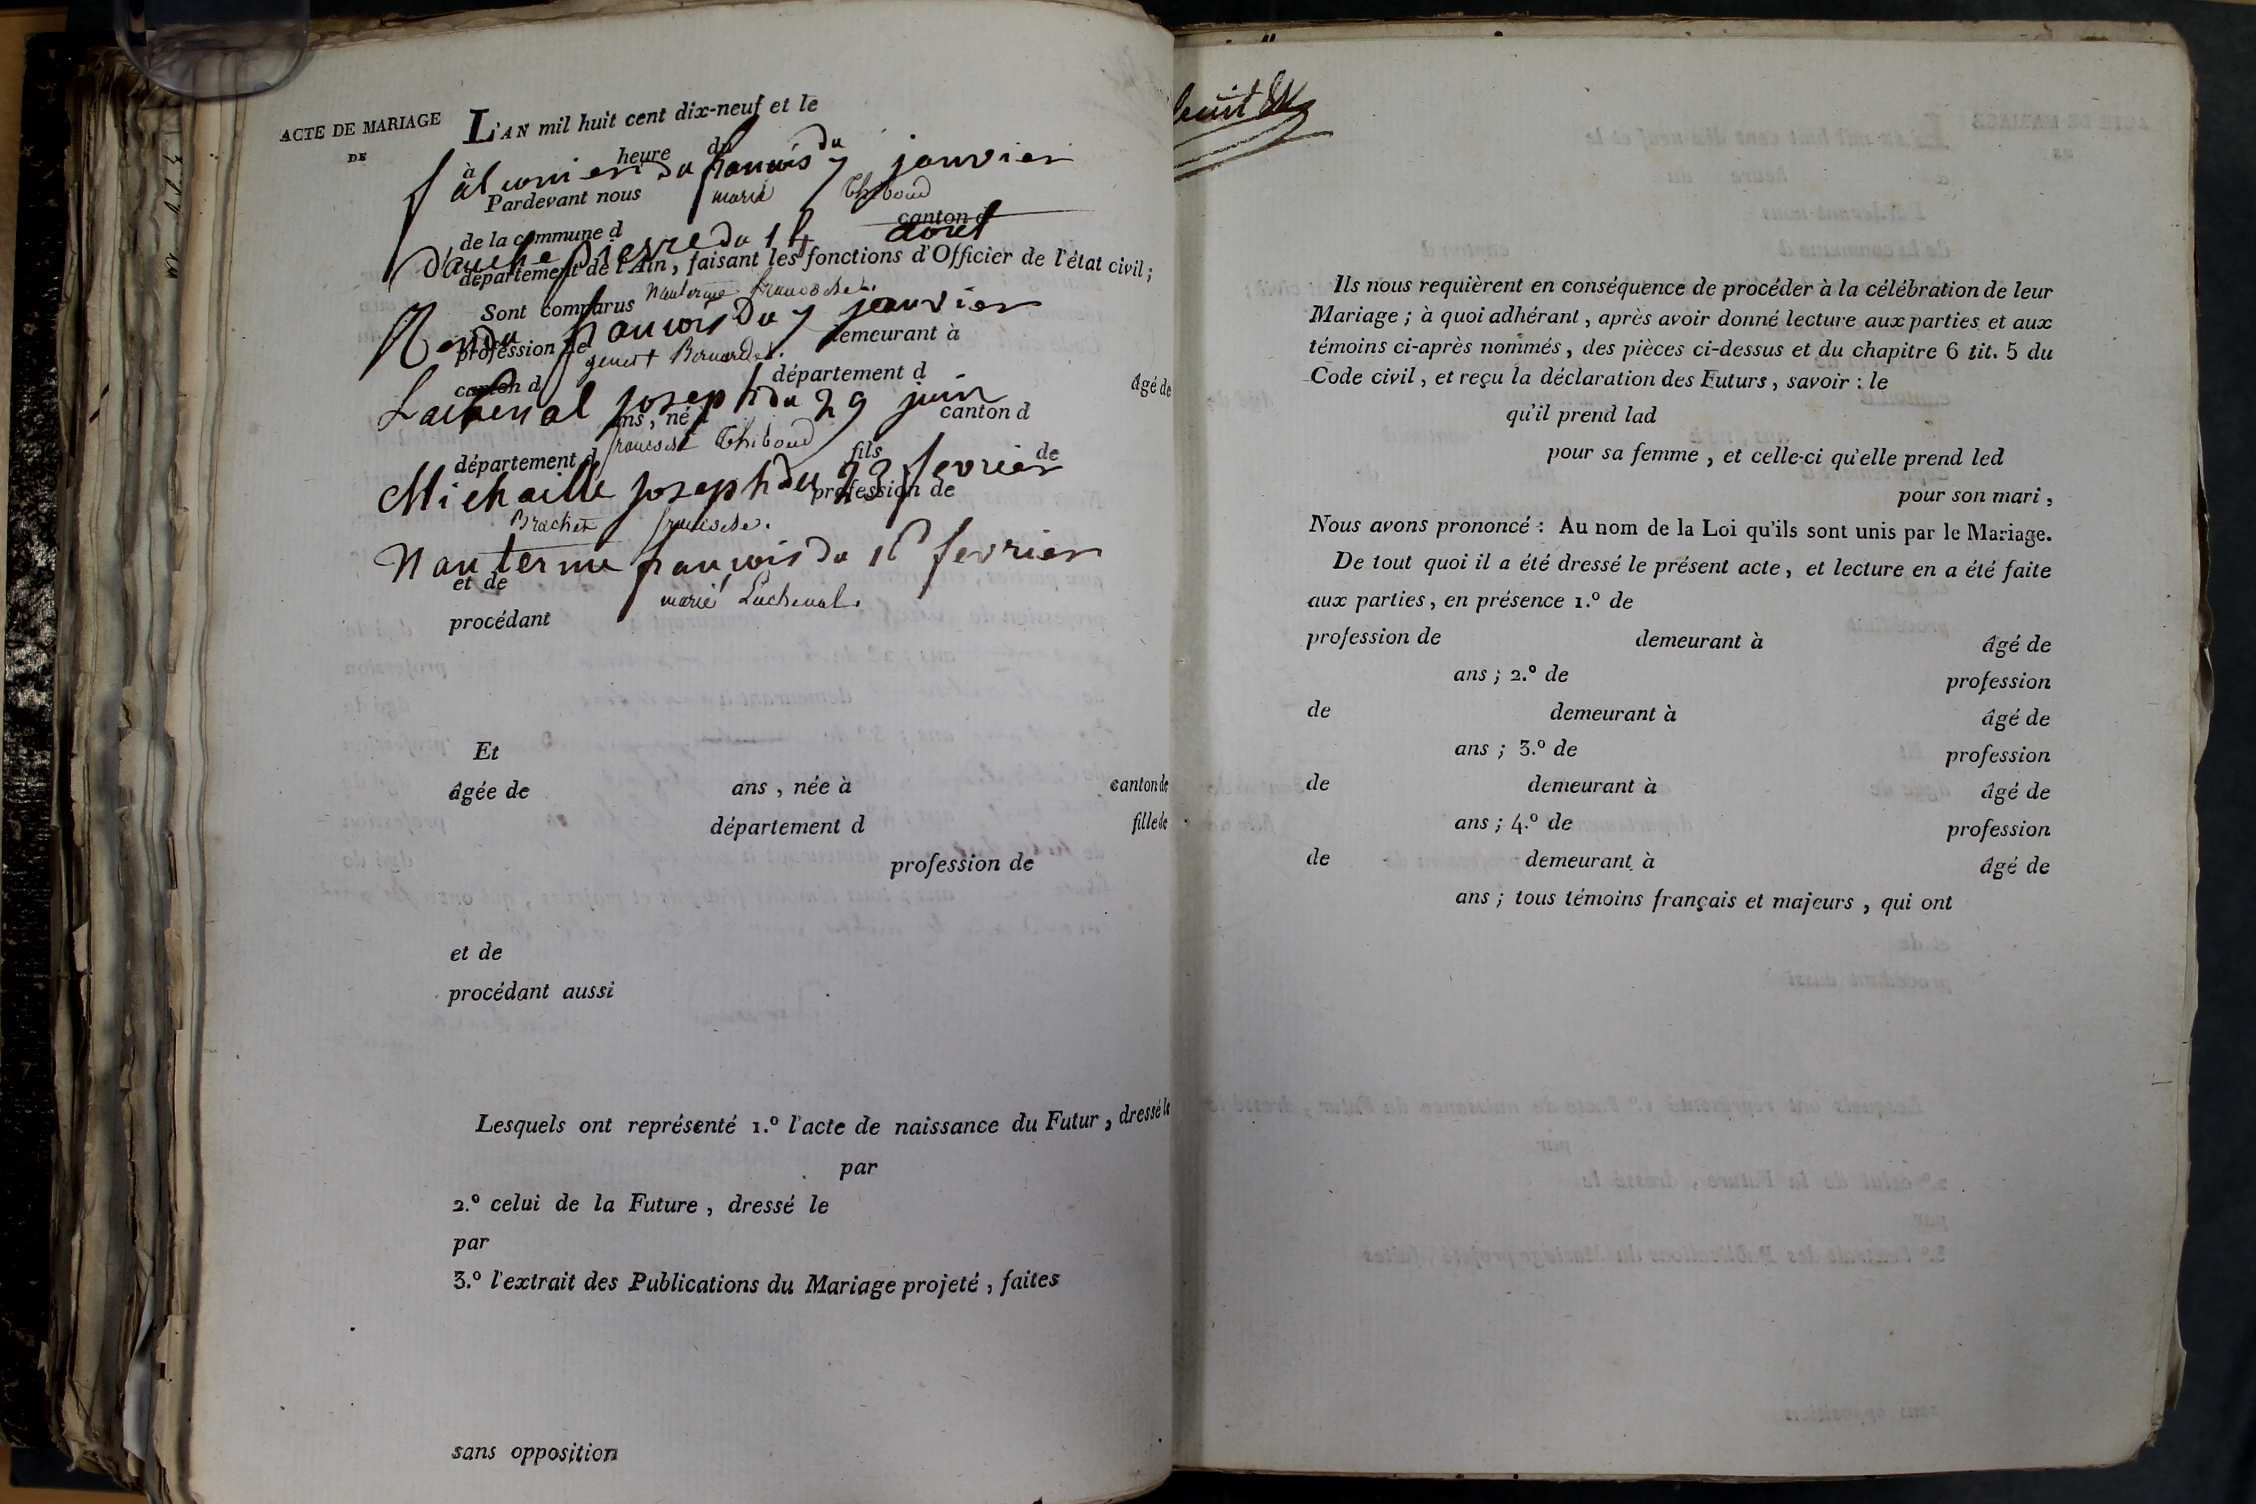 ACTE DE MARIAGE
DE
L'AN mil huit cent dix-neuf et le
à heure du
falconier du francois du 7 janvier
Pardevant nous
marie Thiboud
de la commune d canton d
Dauche pierre du 14 aout
département de l'Ain, faisant les fonctions d'Officier de l'état civil;
Nanterme francoise.
Sont comparus
Rendu francois du 7 janvier
profession de demeurant à
genest Bernarde.
canton d département d âgé de
Lachenal joseph du 29 juin
ans, né à canton d
francoise Thiboud
département d fils de
Michaille joseph du 23 fevrier
profession de
Brachet francoise.
Nanterme francois du 16 fevrier
et de
marie Lachenal.
procédant
Et
âgée de ans, née à canton de
département d fille de
profession de
et de
procédant aussi
Lesquels ont représenté 1.º l'acte de naissance du Futur, dressé le
par
2.º celui de la Future, dressé le
par
3.º l'extrait des Publications du Mariage projeté, faites
sans opposition
Ils nous requièrent en conséquence de procéder à la célébration de leur
Mariage; à quoi adhérant, après avoir donné lecture aux parties et aux
témoins ci-après nommés, des pièces ci-dessus et du chapitre 6 tit. 5 du
Code civil, et reçu la déclaration des Futurs, savoir: le
qu'il prend lad
pour sa femme, et celle-ci qu'elle prend led
pour son mari,
Nous avons prononcé: Au nom de la Loi qu'ils sont unis par le Mariage.
De tout quoi il a été dressé le présent acte, et lecture en a été faite
aux parties, en présence 1.º de
profession de demeurant à âgé de
ans; 2.º de profession
de demeurant à âgé de
ans; 3.º de profession
de demeurant à âgé de
ans; 4.º de profession
de demeurant à âgé de
ans; tous témoins français et majeurs, qui ont